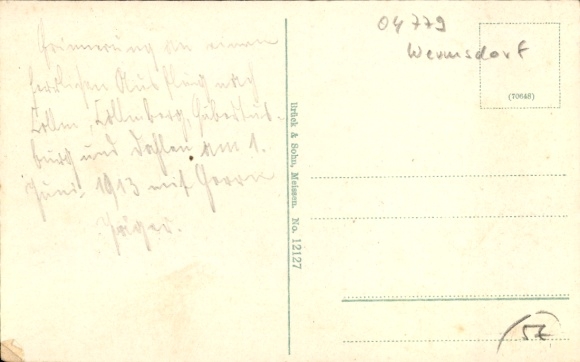 Erinnerung an einen
herrlichen Ausflug nach
Collm, Collmberg, Hubertus-
burg und Dahlen am 1.
Juni 1913 mit Herrn
Jäger.
Brück & Sohn, Meissen. No. 12127
04779
Wermsdorf
(70648)